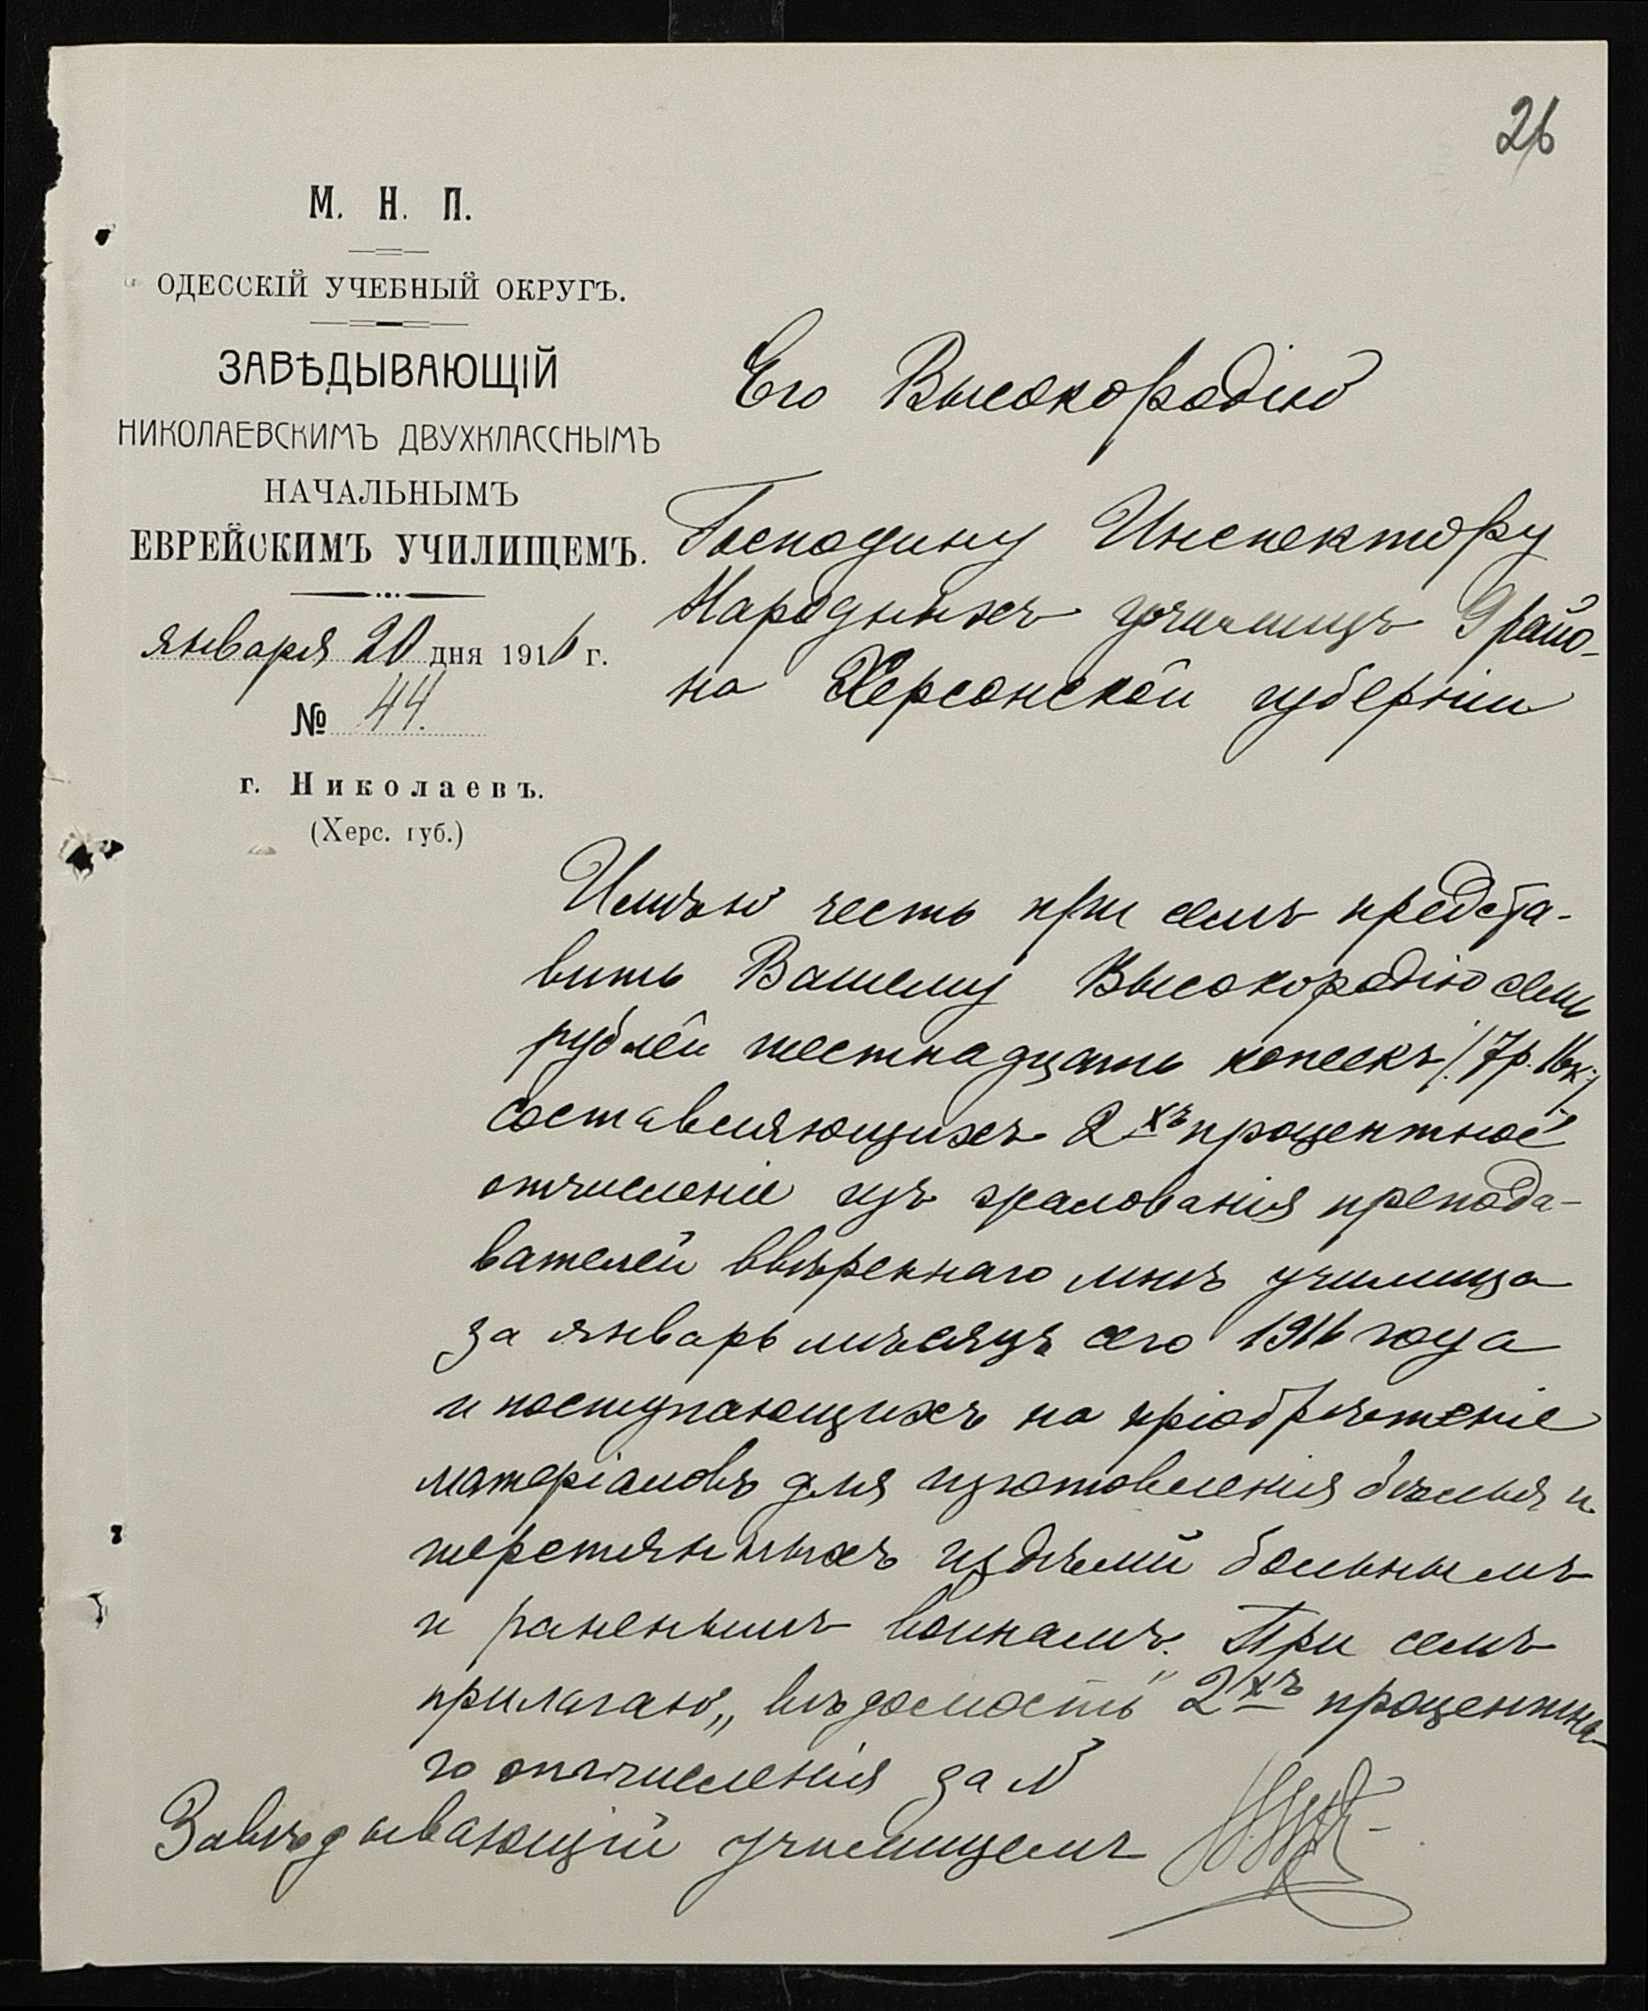 26
М. Н. П.
ОДЕССКІЙ УЧЕБНЫЙ ОКРУГЪ.
ЗАВѢДЫВАЮЩІЙ
НИКОЛАЕВСКИМЪ ДВУХКЛАССНЫМЪ
НАЧАЛЬНЫМЪ
ЕВРЕЙСКИМЪ УЧИЛИЩЕМЪ.
января 20 дня 1916 г.
№ 44.
г. Николаевъ.
(Херс. губ.)
Его Высокородію
Господину Инспектору
Народныхъ училищъ 9 райо-
на Херсонской губерніи
Имѣю честь при семъ предста-
вить Вашему Высокородію семь
рублей шестнадцать копеекъ /7р. 16к./
составляющихъ 2хъ процентное
отчисленіе изъ жалованія препода-
вателей ввѣреннаго мнѣ училища
за январь мѣсяцъ сего 1916 года
и поступающихъ на пріобрѣтеніе
матеріаловъ для изготовленія бѣлья и
шерстяныхъ издѣлій больнымъ
и раненымъ воинамъ. При семъ
прилагаю „вѣдомость" 2хъ процентна-
го отчисленія за №
Завѣдывающій училищемъ